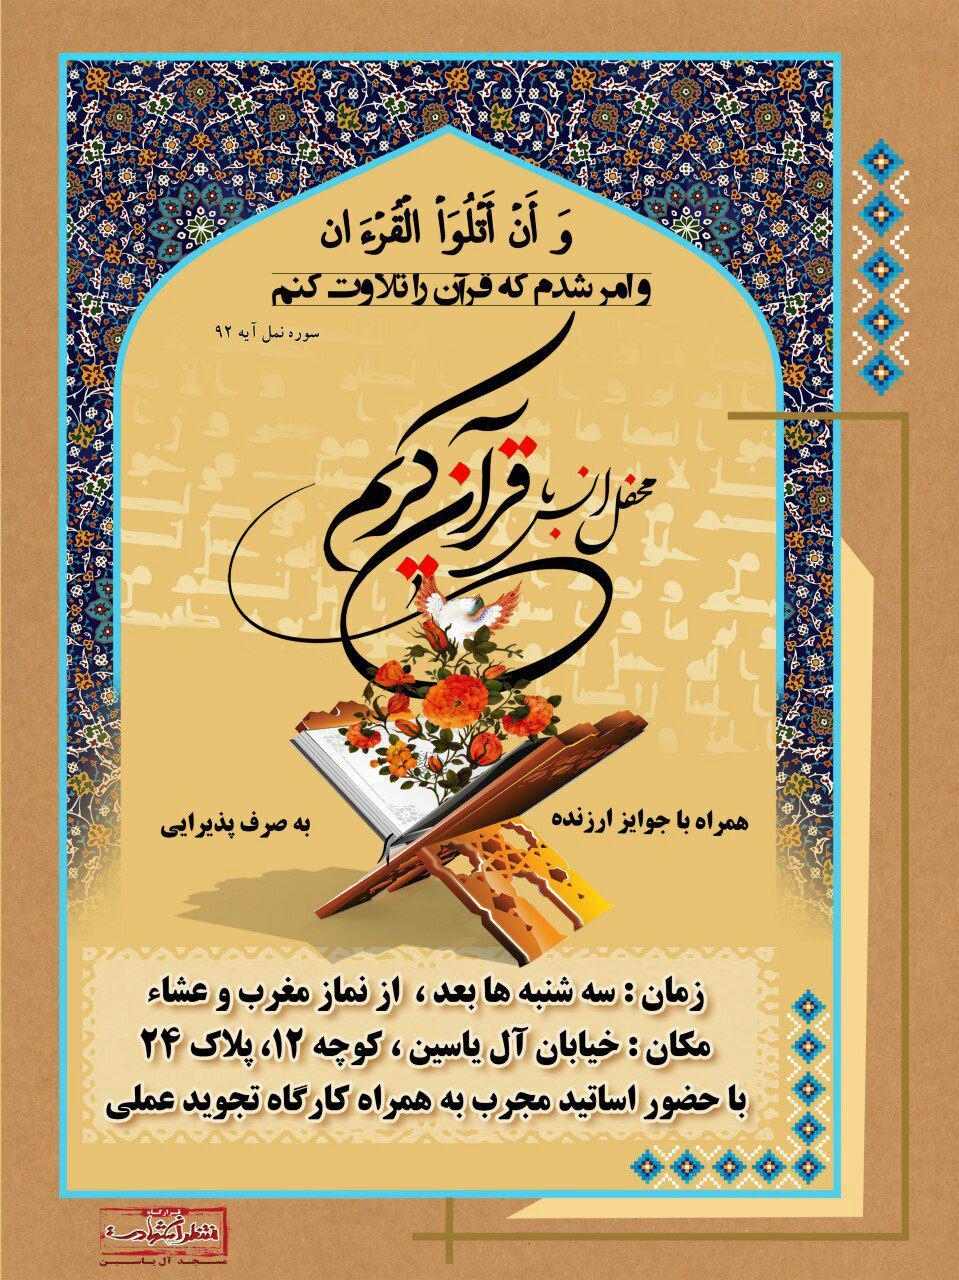 وَ أَنْ أَتْلُوَاْ الْقُرْءَانَ
و امر شدم که قرآن را تلاوت کنم
سوره نمل آیه ۹۲
محفل انس با قرآن کریم
همراه با جوایز ارزنده
به صرف پذیرایی
زمان : سه شنبه ها بعد ، از نماز مغرب و عشاء
مکان : خیابان آل یاسین ، کوچه ۱۲، پلاک ۲۴
با حضور اساتید مجرب به همراه کارگاه تجوید عملی
قرارگاه
منتظران شهادت
مسجد آل یاسین